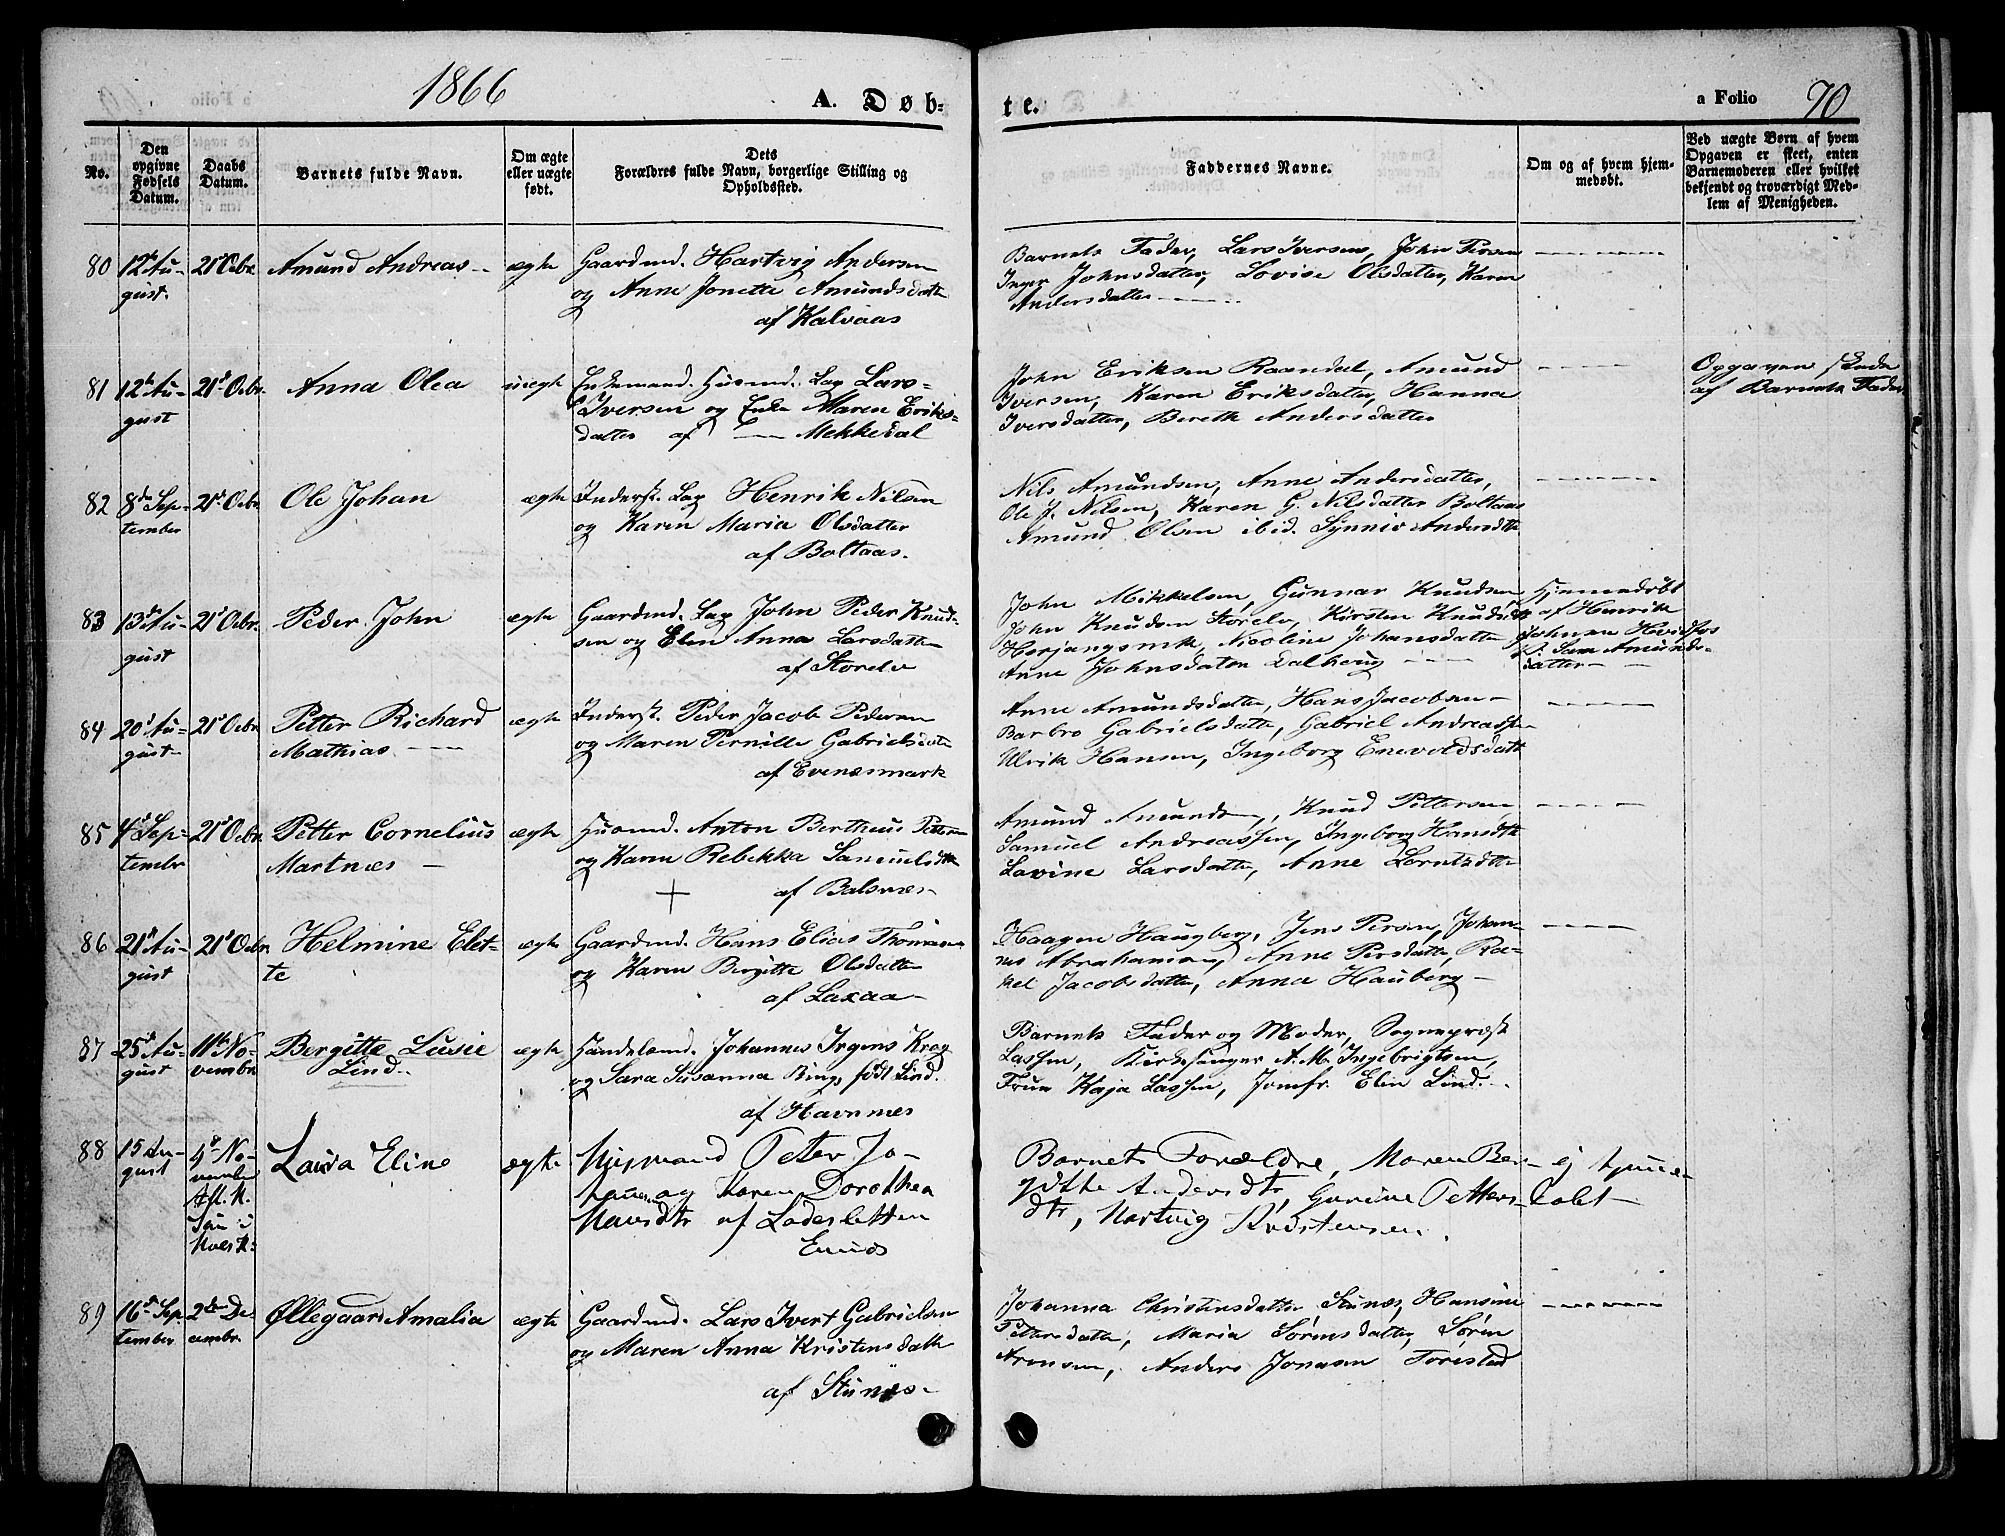 1866
A. Døb-
te.
a Folio 70
No.
Den opgivne Fødsels Datum.
Daabs Datum.
Barnets fulde Navn.
Om ægte eller uægte født.
Dets
Forældres fulde Navn, borgerlige Stilling og
Opholdssted.
Faddernes Navne.
Om og af hvem hjem-
medøbt.
Ved uægte Børn af hvem
Opgaven er skeet, enten
Barnemoderen eller hvilket
bekjendt og troværdigt Med-
lem af Menigheden.
80 12te Au- 21de Octbr. Amund Andreas - ægte Gaardmd. Hartvig Andersen
gust. og Anne Jonette Amundsdatter
af Kalvaas
Barnets Fader, Lars Iversen, John Persen
Inger Johnsdatter, Lovise Olsdatter, Karen
Andersdatter
81 12te Au- 21de Octbr. Anna Olea uægte Enkemand. Husmd. Lap Lars
gust Iversen og Enke Maren Eriks-
datter af Mekkedal
John Eriksen Raandal, Amund
Iversen, Karen Eriksdatter, Hanna
Iversdatter, Bereth Andersdatter
Opgaven skede
af Barnets Fader
82 8de Sep- 21de Octbr. Ole Johan ægte Inderst. Lap Henrik Nilsen
tember og Karen Maria Olsdatter
af Boltaas.
Nils Amundsen, Anne Andersdatter,
Ole J. Nilsen, Karen G. Nilsdatter Boltaas
Amund Olsen ibid. Synniv Andersdtr
83 13de Au- 21de Octbr. Peder John ægte Gaardmd. Lap John Peder Knud-
gust sen og Elen Anna Larsdatter
af Storelv
John Mikkelsen, Gunnar Knudsen,
John Knudsen Storelv, Kirsten Knudsdtr
Herjangsmk, Nicoline Johansdatter
Anne Johnsdatter Dalberg
Hjemmedøbt
af Henrik
Johnsen
Amunds-
datter
84 20de Au- 21de Octbr. Petter Richard ægte Inderst. Peder Jacob Pedersen
gust Mathias og Maren Pernille Gabrielsdatter
af Evenesmark
Anne Amundsdatter, Hans Jacobsen
Barbro Gabrielsdatter, Gabriel Andreassen
Ulrik Hansen, Ingeborg Enevoldsdatt
85 4de Sep- 21de Octbr. Petter Cornelius ægte Husmd. Anton Bertheus Pettersen
tembr Martnæs og Karen Rebekka Samuelsdtr
af Balsnæs
Amund Amundsen, Knud Pettersen
Samuel Andreassen, Ingeborg Hansdtr
Lovine Larsdatter, Anne Lorntzdtr
86 21de Au- 21de Octbr. Helmine Elet- ægte Gaardmd. Hans Elias Thomassen
gust te og Karen Birgitte Olsdatter
af Laxaa
Haagen Haugberg, Jens Persen, Johan-
nes Abrahamsen, Anne Persdatter, Ra-
kel Jacobsdatter, Anna Hauberg
87 25de Au- 11te No- Bergitte Lusie ægte Handelsmd. Johannes Irgens Krog
gust vembr. Lind og Sara Susanna Bing, født Lind.
af Havnnæs
Barnets Fader og Moder, Sognepræst
Lassen, Kirkesanger A. M. Ingebrigtsen,
Frue Kaja Lassen, Jomfr. Elin Lind.
88 15 Au- 4de No- Laura Eline ægte Huusmand Peter Jo-
gust vember og Karen Dorothea
Hansdtr af Lodesletten
Barnets Forældre, Maren Ber-
gitthe Andersdtr, Gurine Petters-
dtr, Hartvig Kristensen.
ej hjemme-
døbt
89 16de Sep 2den De- Øllegaard Amalia ægte Gaardmd. Lars Ivert Gabrielsen
tember cembr. og Maren Anna Kristensdatter
af Stunæs
Johanna Christensdatter Stunæs, Hansine
Petersdatter, Maria Sørensdatter, Søren
Aronsen, Anders Jonassen Forestad